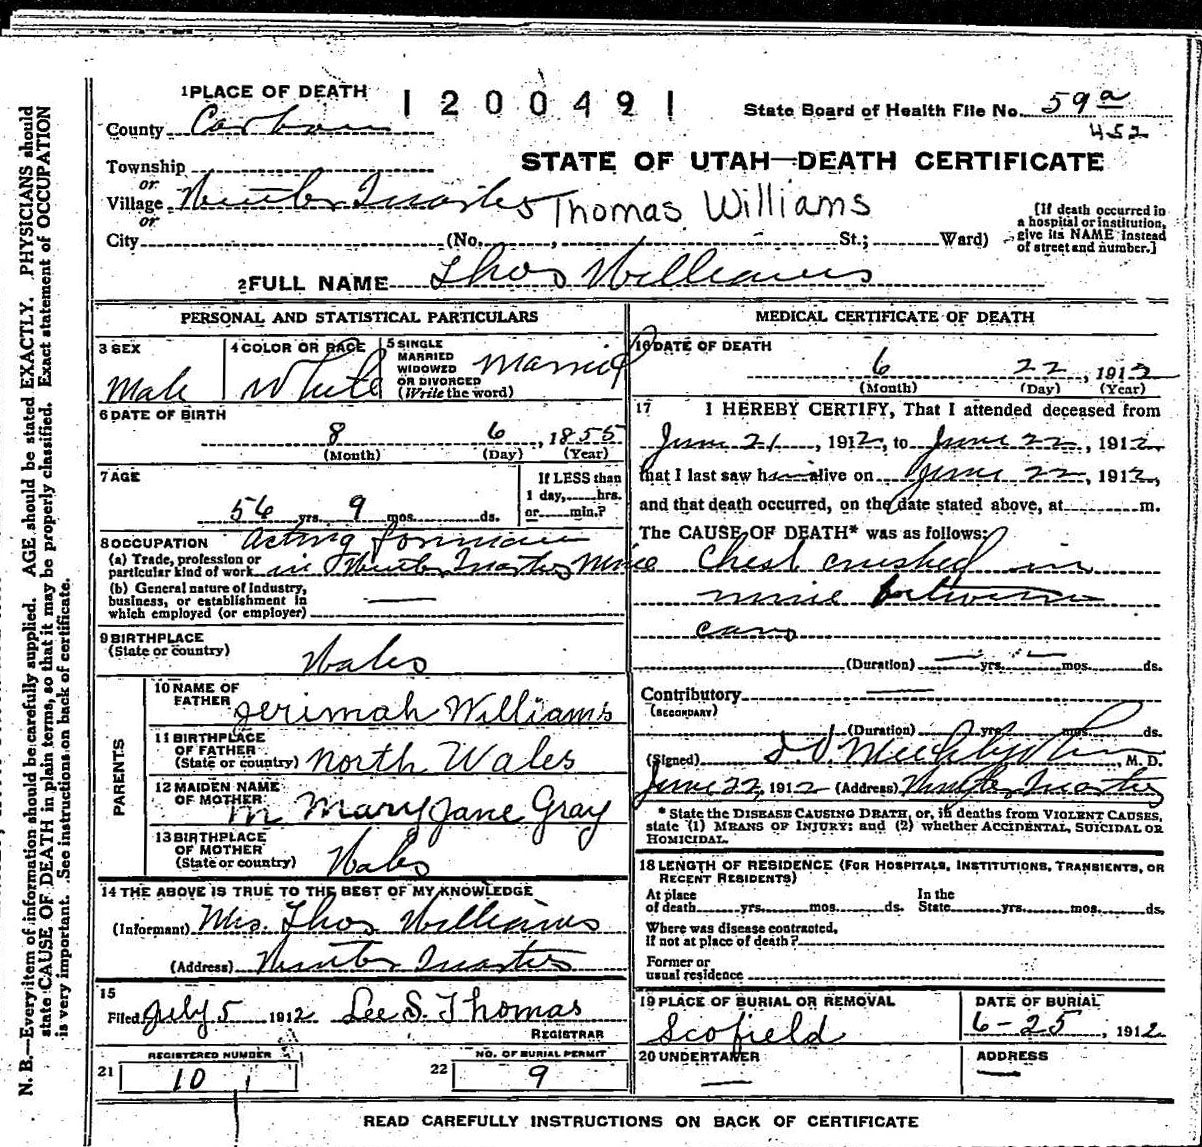 1 PLACE OF DEATH
1200491
State Board of Health File No. 59a
452
County Carbon
STATE OF UTAH—DEATH CERTIFICATE
Township
or
Village Winter Quarters
Thomas Williams
or
City (No. , St.; Ward)
[If death occurred in a hospital or institution, give its NAME instead of street and number.]
2 FULL NAME Thos Williams
PERSONAL AND STATISTICAL PARTICULARS
3 SEX
Male
4 COLOR OR RACE
White
5 SINGLE MARRIED WIDOWED OR DIVORCED (Write the word)
Married
6 DATE OF BIRTH
8 6, 1855
(Month) (Day) (Year)
7 AGE
56 yrs. 9 mos. ds.
If LESS than 1 day, hrs. or min.?
8 OCCUPATION Acting
(a) Trade, profession or particular kind of work in Winter Quarters Mine
(b) General nature of Industry, business, or establishment in which employed (or employer) —
9 BIRTHPLACE
(State or country)
Wales
PARENTS
10 NAME OF FATHER
Jerimah Williams
11 BIRTHPLACE OF FATHER
(State or country) North Wales
12 MAIDEN NAME OF MOTHER
m Mary Jane Gray
13 BIRTHPLACE OF MOTHER
(State or country) Wales
14 THE ABOVE IS TRUE TO THE BEST OF MY KNOWLEDGE
(Informant) Mrs. Thos Williams
(Address) Winter Quarters
15
Filed July 5 1912 Lee S. Thomas
REGISTRAR
REGISTERED NUMBER
21 10
NO. OF BURIAL PERMIT
22 9
MEDICAL CERTIFICATE OF DEATH
16 DATE OF DEATH
6 22, 1912
(Month) (Day) (Year)
17 I HEREBY CERTIFY, That I attended deceased from
June 21, 1912, to June 22, 1912
that I last saw him alive on June 22, 1912,
and that death occurred, on the date stated above, at m.
The CAUSE OF DEATH* was as follows:
Chest crushed in
mine between
cars
(Duration) — yrs. — mos. ds.
Contributory —
(SECONDARY)
(Duration) yrs. mos. ds.
(Signed) , M. D.
June 22, 1912 (Address) Winter Quarters
* State the DISEASE CAUSING DEATH, or, in deaths from VIOLENT CAUSES, state (1) MEANS OF INJURY; and (2) whether ACCIDENTAL, SUICIDAL OR HOMICIDAL.
18 LENGTH OF RESIDENCE (FOR HOSPITALS, INSTITUTIONS, TRANSIENTS, OR RECENT RESIDENTS)
At place of death yrs. mos. ds. In the State yrs. mos. ds.
Where was disease contracted, If not at place of death?
Former or usual residence
19 PLACE OF BURIAL OR REMOVAL
Scofield
DATE OF BURIAL
6-25, 1912
20 UNDERTAKER
—
ADDRESS
—
READ CAREFULLY INSTRUCTIONS ON BACK OF CERTIFICATE
N. B.—Every item of information should be carefully supplied. AGE should be stated EXACTLY. PHYSICIANS should
state CAUSE OF DEATH in plain terms, so that it may be properly classified. Exact statement of OCCUPATION
is very important. See instructions on back of certificate.